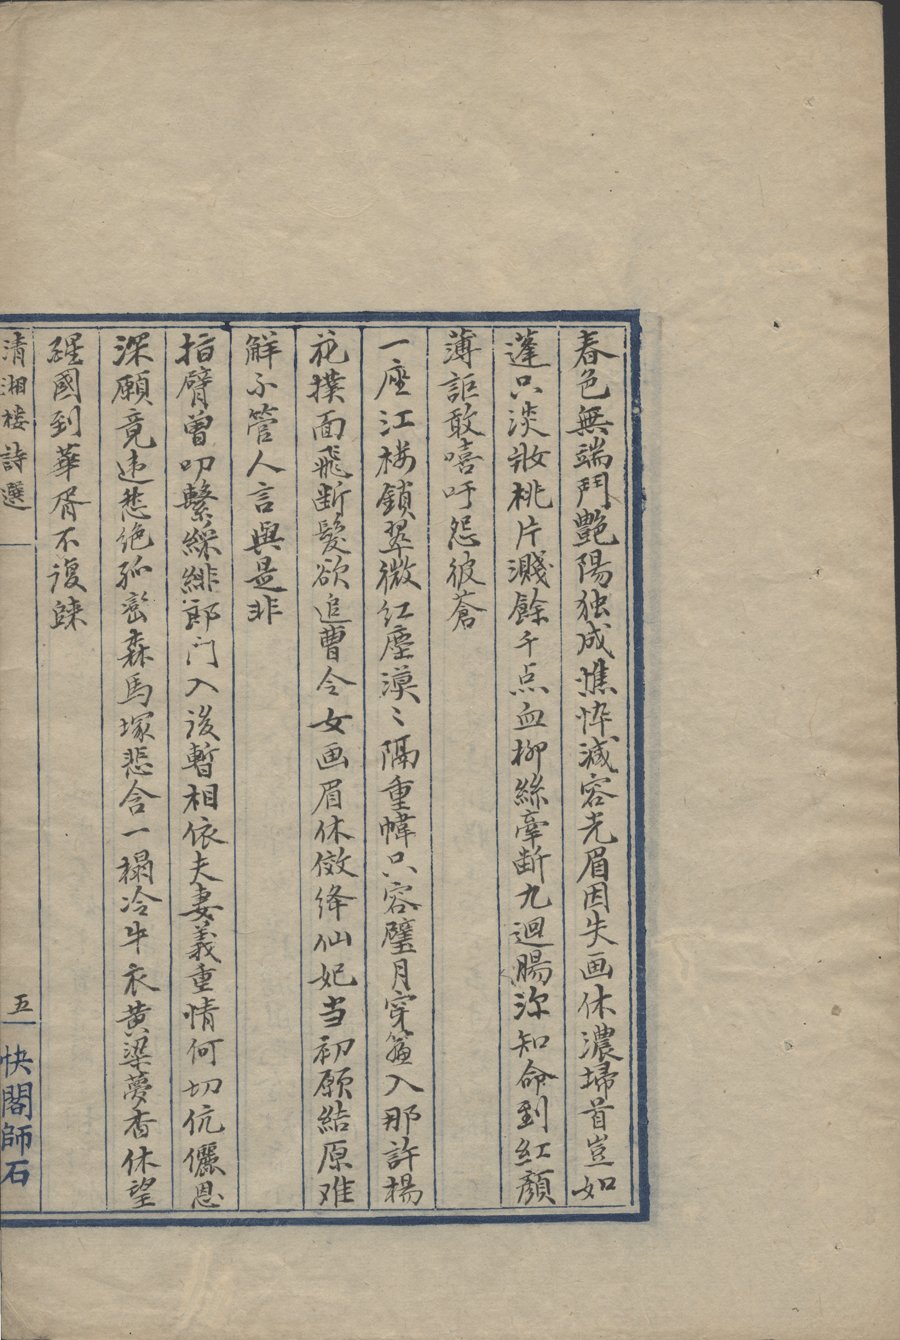 春色無端鬥艷陽独成憔悴減容光眉因失画休濃掃首豈如
蓬只淡妝桃片濺餘千点血柳絲牽断九迴腸深知命到紅顏
薄詎敢嘻吁怨彼蒼
一座江楼鎖翠微紅塵漠〻隔重幃只容璧月穿簾入那許楊
花撲面飛断髮欲追曹令女画眉休傚绛仙妃当初願結原难
解不管人言與是非
指臂曾叨繫綵緋郎门入後暫相依夫妻義重情何切伉儷恩
深願竟违愁绝孤巒森馬塚悲含一榻冷牛衣黄粱夢杳休望
醒國到華胥不復歸
清湘楼詩選
五
快閣師石